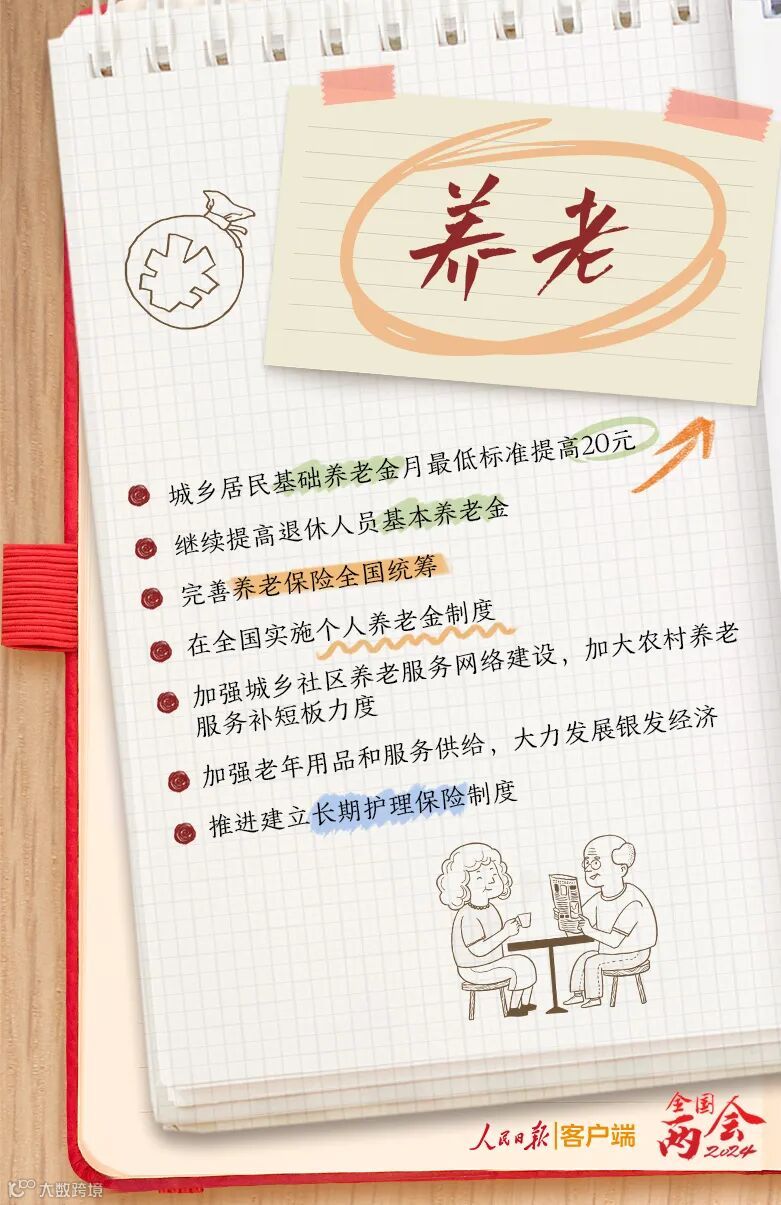 养老
城乡居民基础养老金月最低标准提高20元
继续提高退休人员基本养老金
完善养老保险全国统筹
在全国实施个人养老金制度
加强城乡社区养老服务网络建设，加大农村养老
服务补短板力度
加强老年用品和服务供给，大力发展银发经济
推进建立长期护理保险制度
人民日报|客户端
全国两会2024
大数跨境